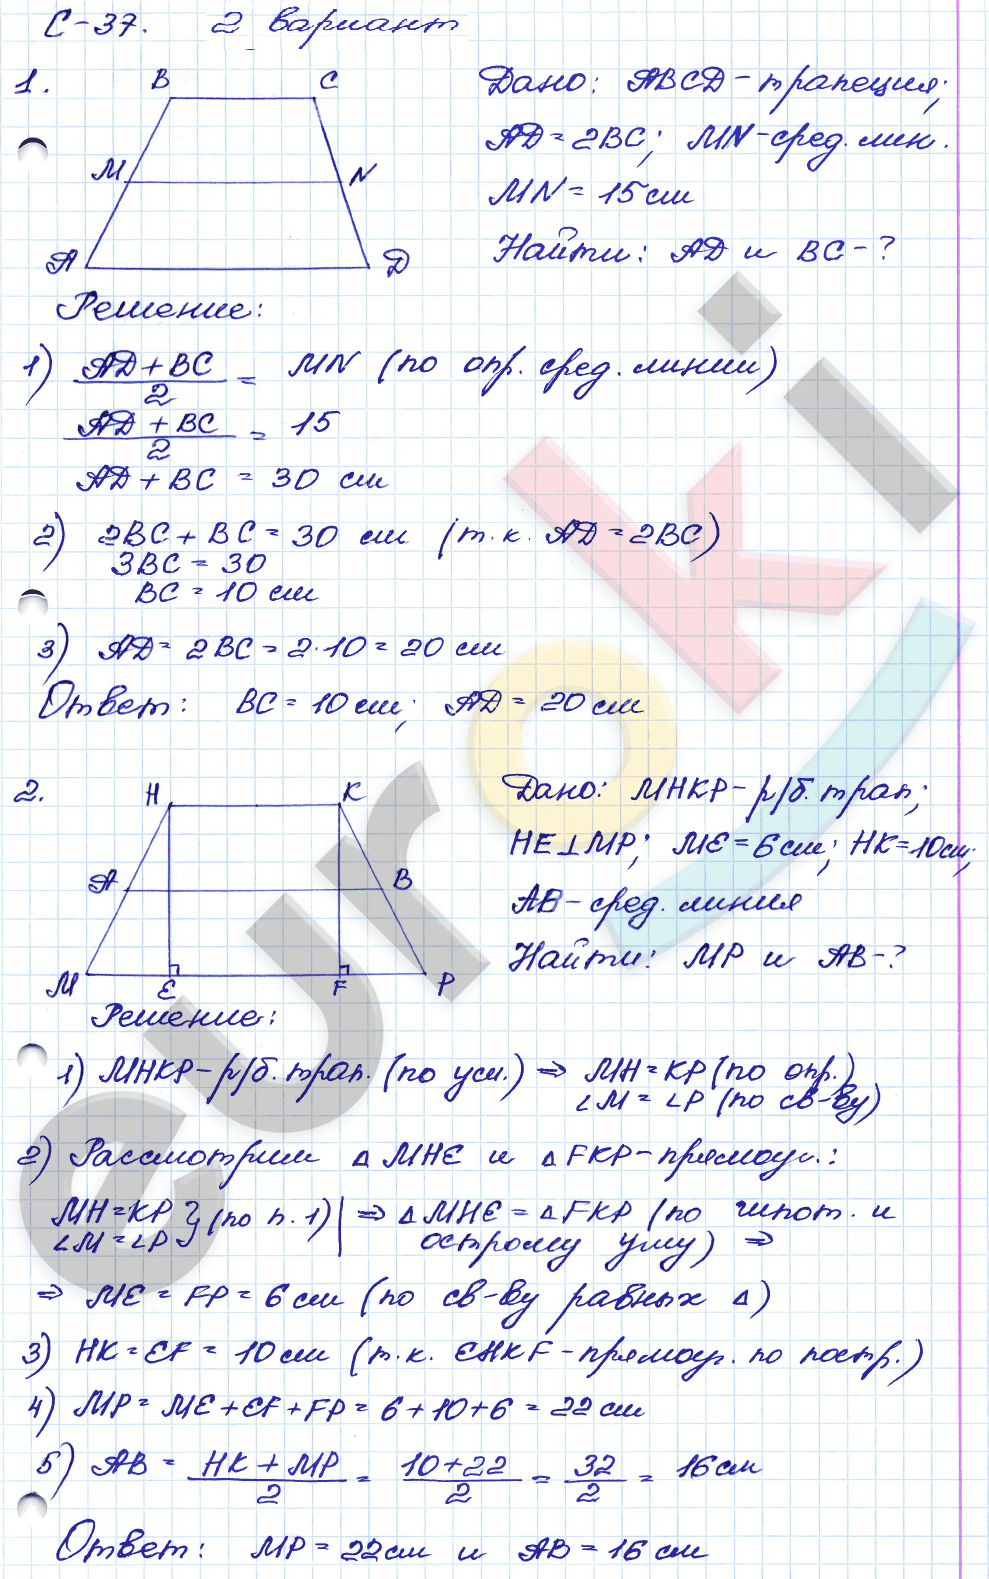 С-37. 2 вариант
1.
B C
M N
A D
Дано: ABCD - трапеция;
AD = 2BC; MN - сред. лин.
MN = 15 см
Найти: AD и BC - ?
Решение:
1) (AD + BC)/2 = MN (по опр. сред. линии)
(AD + BC)/2 = 15
AD + BC = 30 см
2) 2BC + BC = 30 см (т.к. AD = 2BC)
3BC = 30
BC = 10 см
3) AD = 2BC = 2·10 = 20 см
Ответ: BC = 10 см; AD = 20 см
2.
H K
A B
M E F P
Дано: MHKP - р/б. трап;
HE⊥MP; ME = 6 см; HK = 10см;
AB - сред. линия
Найти: MP и AB - ?
Решение:
1) MHKP - р/б. трап. (по усл.) ⇒ MH = KP (по опр.)
∠M = ∠P (по св-ву)
2) Рассмотрим △MHE и △FKP - прямоуг.:
MH = KP } (по п. 1) | ⇒ △MHE = △FKP (по гипот. и
∠M = ∠P острому углу) ⇒
⇒ ME = FP = 6 см (по св-ву равных △)
3) HK = EF = 10 см (т.к. EHKF - прямоуг. по постр.)
4) MP = ME + EF + FP = 6 + 10 + 6 = 22 см
5) AB = (HK + MP)/2 = (10 + 22)/2 = 32/2 = 16 см
Ответ: MP = 22 см и AB = 16 см
euroki